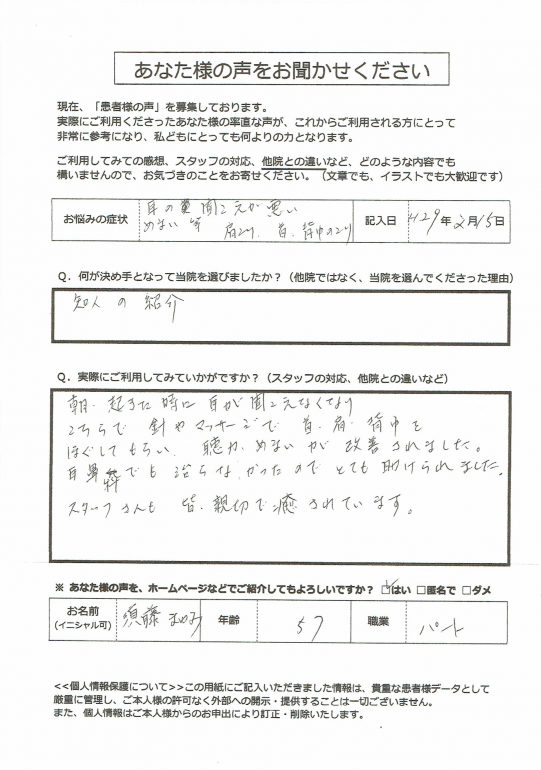 あなた様の声をお聞かせください
現在、「患者様の声」を募集しております。
実際にご利用くださったあなた様の率直な声が、これからご利用される方にとって
非常に参考になり、私どもにとっても何よりの力となります。
ご利用してみての感想、スタッフの対応、他院との違いなど、どのような内容でも
構いませんので、お気づきのことをお寄せください。（文章でも、イラストでも大歓迎です）
お悩みの症状
耳の聞こえが悪い
めまい 等 肩こり、首、背中のこり
記入日 H29年2月15日
Q．何が決め手となって当院を選びましたか？（他院ではなく、当院を選んでくださった理由）
知人の紹介
Q．実際にご利用してみていかがですか？（スタッフの対応、他院との違いなど）
朝、起きた時に耳が聞こえなくなり
こちらで針やマッサージで首、肩、背中を
ほぐしてもらい、聴力、めまいが改善されました。
耳鼻科でも治らなかったのでとても助けられました。
スタッフさんも皆、親切で癒されています。
※ あなた様の声を、ホームページなどでご紹介してもよろしいですか？ ☑はい □匿名で □ダメ
お名前
(イニシャル可)
須藤
年齢 57 職業 パート
<<個人情報保護について>>この用紙にご記入いただきました情報は、貴重な患者様データとして
厳重に管理し、ご本人様の許可なく外部への開示・提供することは一切ございません。
また、個人情報はご本人様からのお申出により訂正・削除いたします。